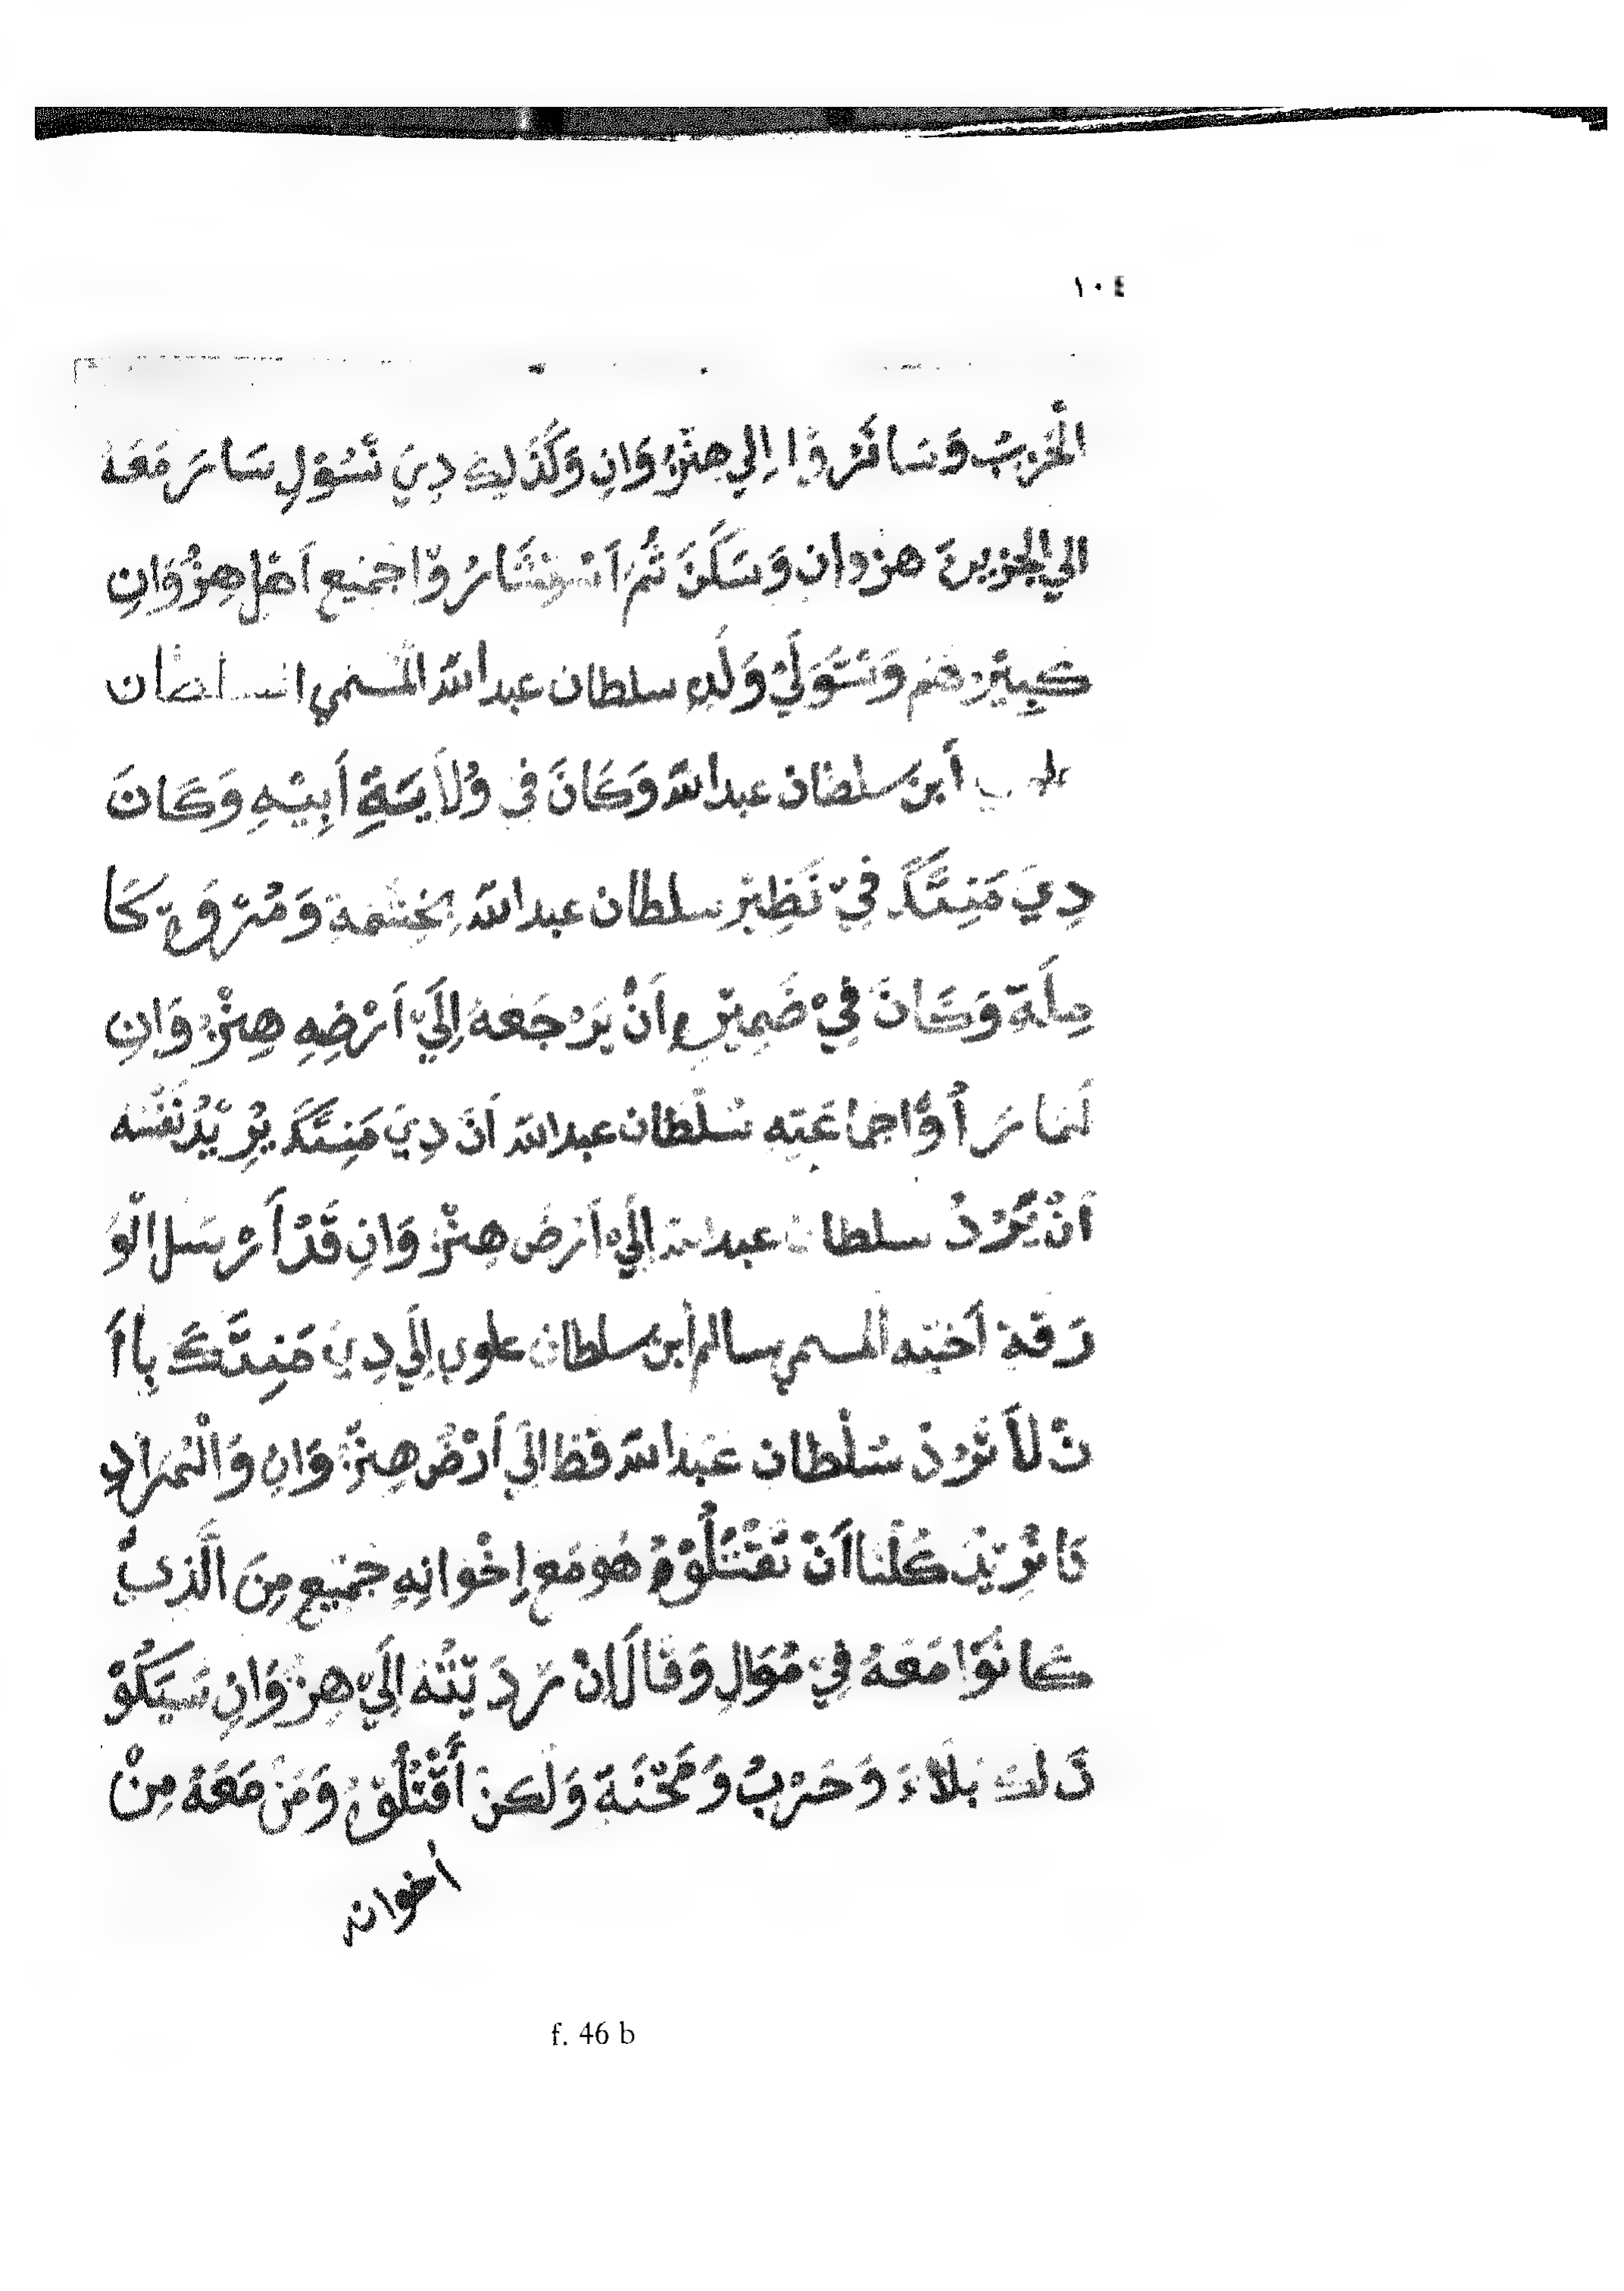 ١٠٤
الْحَرْبُ وَسَافَرُوْا اِلي هِنْزُوَانِ وَكَذَلِكَ دِيَ نَسُوْلِ سَارَ مَعَهُ
الي الجزيرة هنزوان وَسَكَنَ ثُمَّ اَسْتِشَارُوْا جَمِيْعِ اَهْل هِنْزُوَانِ
كَبِيْرُهُمْ وَتَسَوَلَّيْ وَلَدِ سلطان عبدالله الْمُسَمي السلطان
علوي أَبن سلطان عبدالله وَكَانَ في وُلاَيَةِ أَبِيْهِ وَكَانَ
دِيَ مَنِتَّكَ فِيْ نَظِيْرْ سلطان عبدالله بِخِتْمَةِ وَمُرْوَةٍ كَا
مِلَةَ وَكَانَ فِيْ ضَمِيْرِهِ اَنْ يَرْجَعَهُ اِلَيْ اَرْضِهِ هِنْزُوَانِ
لَمَا رَأَوْا جَمَاعَتِهِ سُلْطَان عبدالله اَنَّ دِيَ مَنِتَّكَ يُرِيْدُ نَفْسَهُ
اَنْ يَّرُدْ سلطان عبدالله اِلَيْ اَرْضِ هِنْزُوَانِ قَدْ أَرْسَل الْوَ
رَقَةِ اَخيْه الْمسمي سالم أبن سلطان علوي اِلَي دِيَ مَنِتَّكَ بِاأَ
نْ لاَ تَرُدْ سُلْطَان عَبدالله قَطْ الَي اَرْضْ هِنْزُوَانِ وَالْمُرَادِ
نَا نُرِيْدُ كُلُّنَا اَنْ نَقْتَلُوْهُ هُوَ مَعِ اِخْوَانِهِ جَمْيعِ مِنَ الَّذِيْ
كَانُوْا مَعَهُ فِيْ مُوَالِ وَقَالَ اِنْ رَدَيْتُهُ اِلَيْ هِنْزُوَانِ سَيَكُوْ
ذَلكَ بَلاَءَ وَحَرْبُ وَمَحْنَةَ وَلَكِنْ أَقْتُلْوْهُ وَمَنْ مَعَهُ مِنْ
اخوانه
f. 46 b